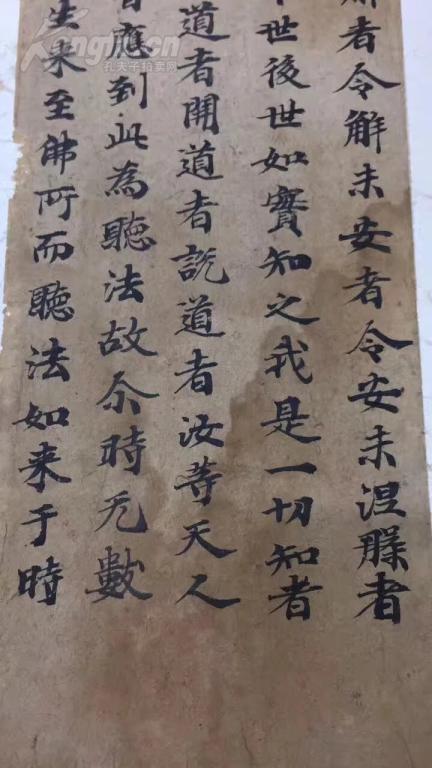 者令解未安者令安未涅槃者
世後世如實知之我是一切知者
道者開道者說道者汝等天人
應到此為聽法故尒時无數
生来至佛所而聽法如来于時
孔夫子拍卖网